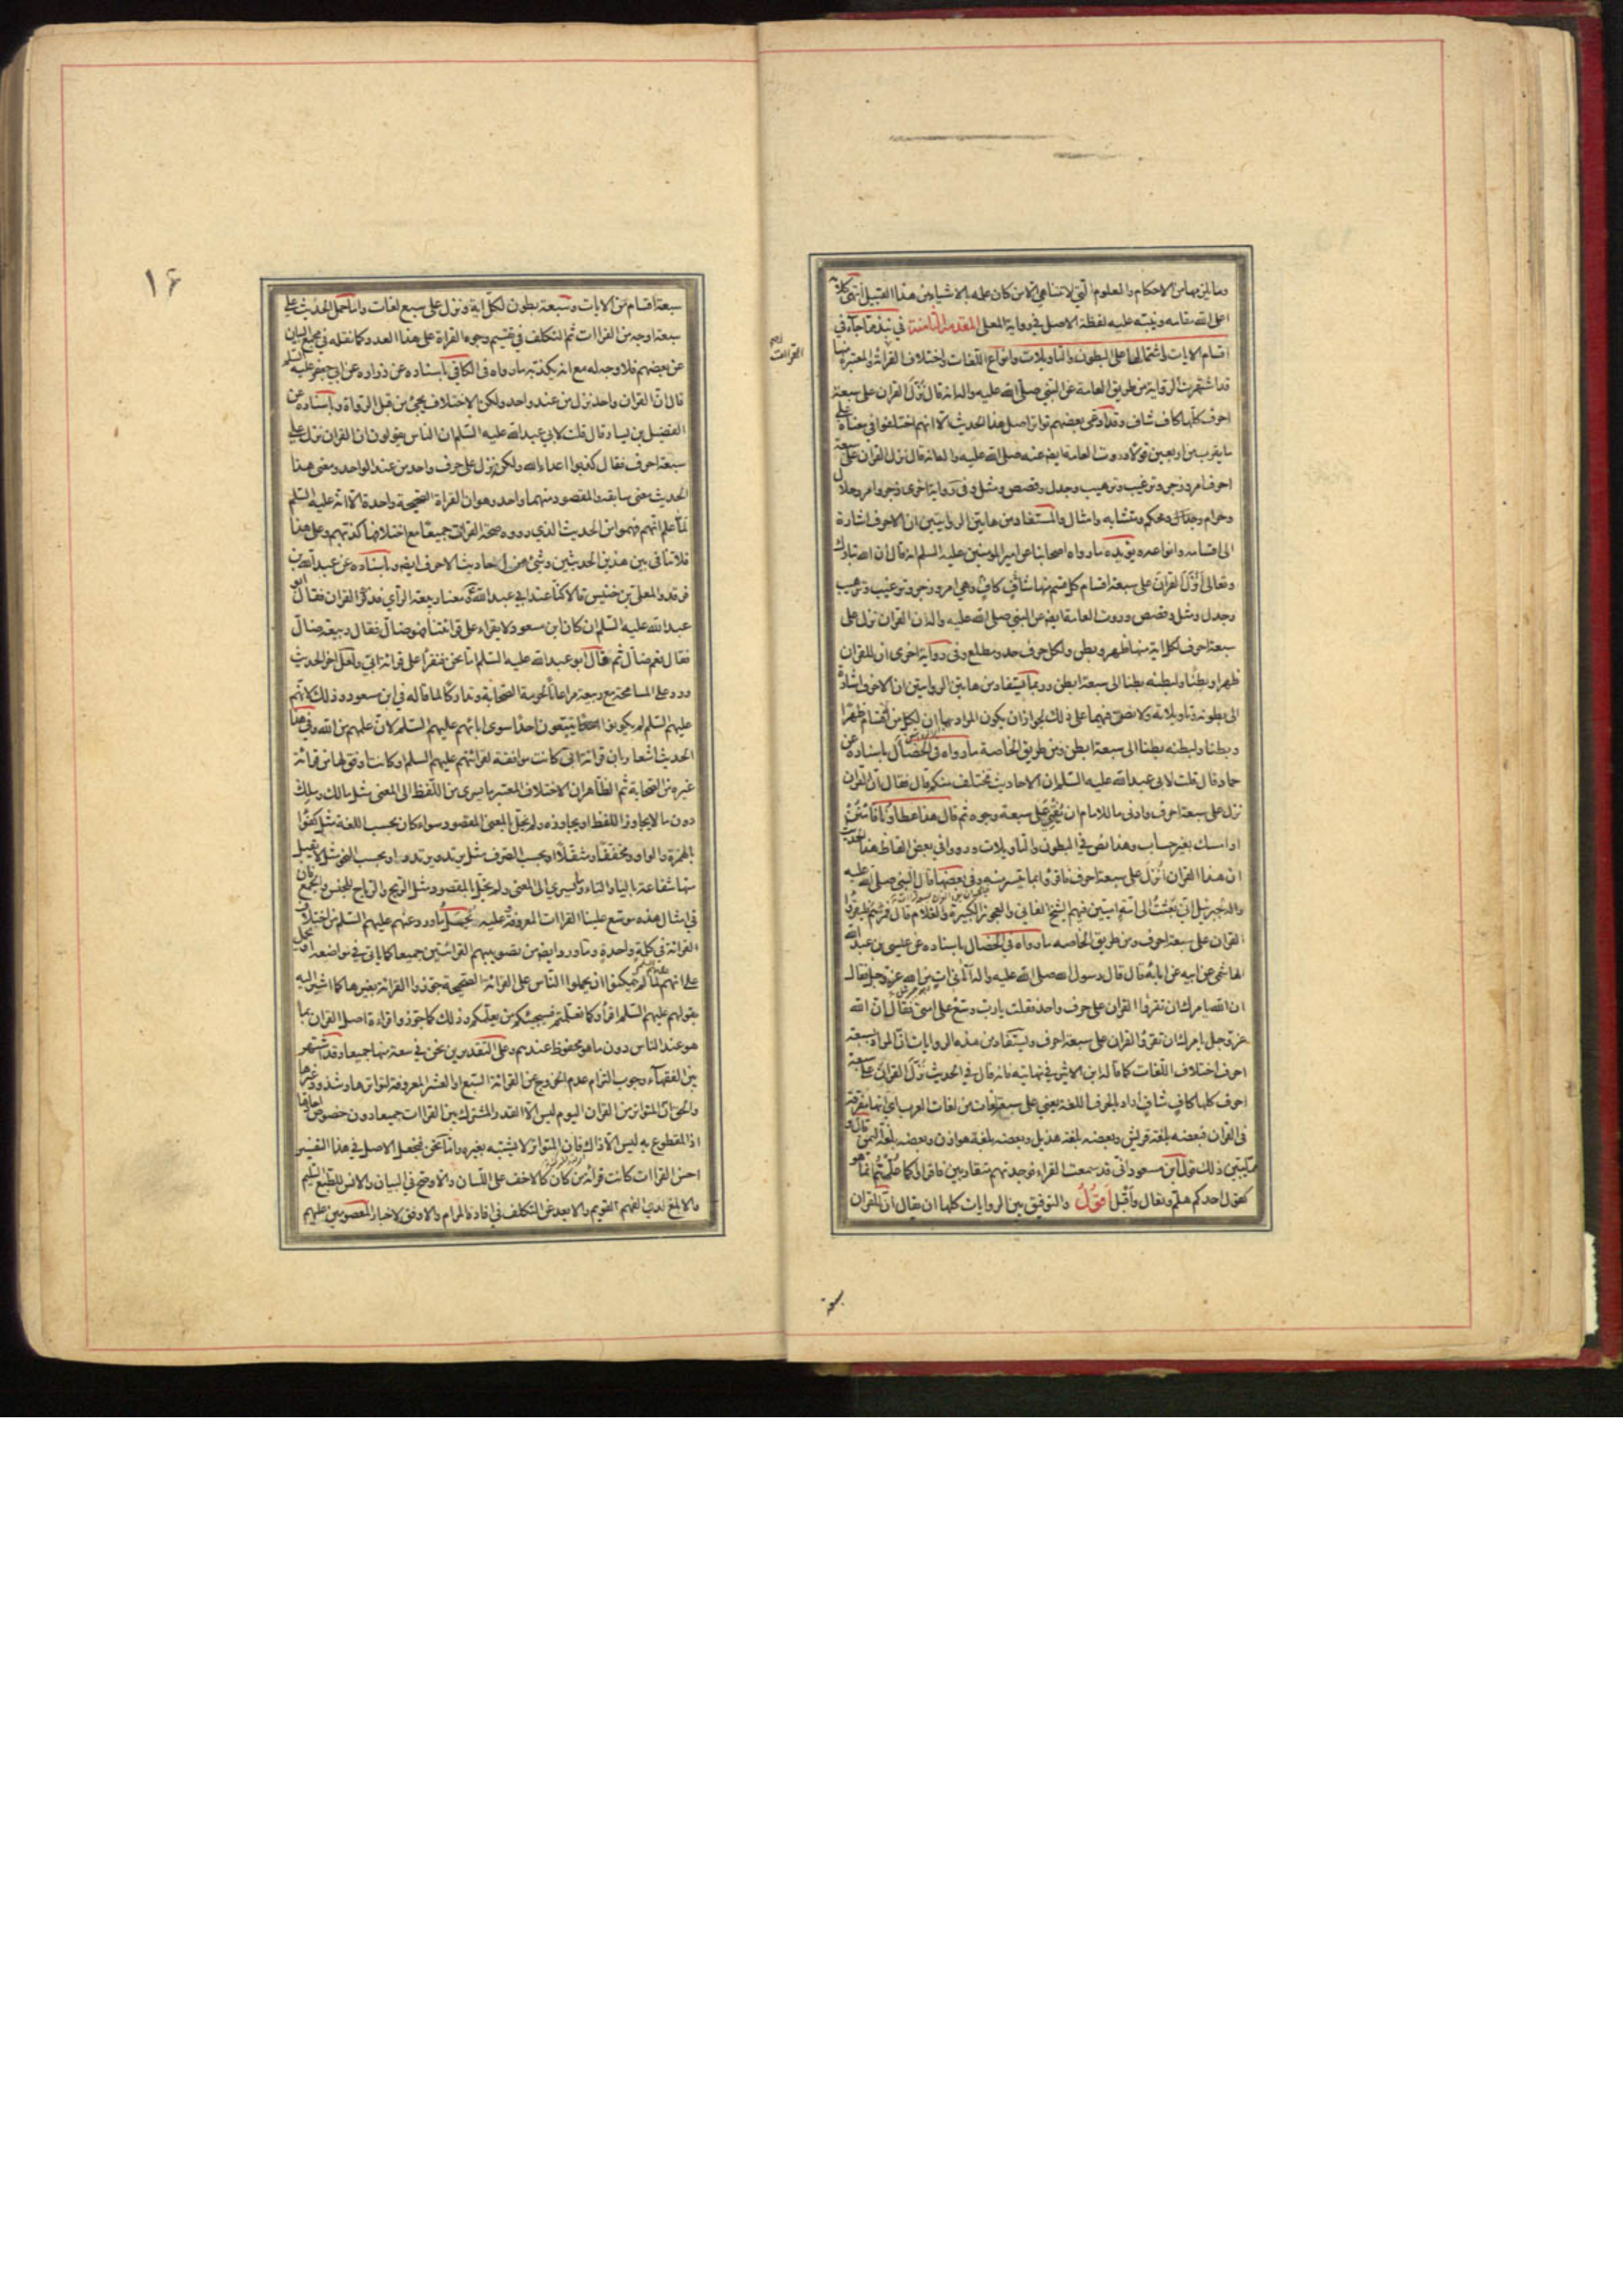 وما يلزمها من الاحكام والعلوم التي لا تتناهى الا من كان علمه بالاشياء من هذا القبيل انتهى كلامه
اعلى الله مقامه وينبه عليه لفظة الاصل في رواية المعلى المقدمة الثامنة في نبذ مما جاء في
اقسام الايات واشتمالها على البطون والتاويلات وانواع اللغات واختلاف القراءة والمعتبرة منها
قد اشتهرت الرواية من طريق العامة عن النبي صلى الله عليه واله انه قال نزل القران على سبعة
احرف كلها كاف شاف وقد ادعى بعضهم تواتر اصل هذا الحديث الا انهم اختلفوا في معناه على
ما يقرب من اربعين قولا وروت العامة ايضا عنه صلى الله عليه واله انه قال نزل القران على سبعة
احرف امر وزجر وترغيب وترهيب وجدل وقصص ومثل وفي رواية اخرى زجر وامر وحلال
وحرام ومحكم ومتشابه وامثال والمستفاد من هاتين الروايتين ان الاحرف اشارة
الى اقسامه وانواعه ويؤيده ما رواه اصحابنا عن امير المؤمنين عليه السلم انه قال ان الله تبارك
وتعالى انزل القران على سبعة اقسام كل قسم منها شاف كاف وهي امر وزجر وترغيب وترهيب
وجدل ومثل وقصص وروت العامة ايضا عن النبي صلى الله عليه واله ان القران نزل على
سبعة احرف لكل اية منها ظهر وبطن ولكل حرف حد ومطلع وفي رواية اخرى ان للقران
ظهرا وبطنا ولبطنه بطنا الى سبعة ابطن وربما يستفاد من هاتين الروايتين ان الاحرف اشارة
الى بطونه وتاويلاته ولا نص فيهما على ذلك لجواز ان يكون المراد بهما ان لكل من الاقسام ظهرا
وبطنا ولبطنه بطنا الى سبعة ابطن ومن طريق الخاصة ما رواه في الخصال باسناده عن
حماد قال قلت لابي عبد الله عليه السلم ان الاحاديث تختلف منكم قال فقال ان القران
نزل على سبعة احرف وادنى ما للامام ان يفتي على سبعة وجوه ثم قال هذا عطاؤنا فامنن
او امسك بغير حساب وهذا نص في البطون والتاويلات ورووا في بعض الفاظ هذا الحديث
ان هذا القران انزل على سبعة احرف فاقرؤا بما تيسر منه وفي بعضها قال النبي صلى الله عليه
واله لجبرئيل اني بعثت الى امة اميين فيهم الشيخ الفاني والعجوز الكبيرة والغلام قال فمرهم فليقرؤا
القران على سبعة احرف ومن طريق الخاصه ما رواه في الخصال باسناده عن عيسى بن عبد الله
الهاشمي عن ابيه عن ابائه قال قال رسول الله صلى الله عليه واله اتاني ات من الله عز وجل فقال
ان الله يامرك ان تقرؤا القران على حرف واحد فقلت يا رب وسع على امتي فقال ان الله
عز وجل يامرك ان تقرؤا القران على سبعة احرف ويستفاد من هذه الروايات ان المراد بسبعة
احرف اختلاف اللغات كما قاله ابن الاثير في نهايته فانه قال في الحديث نزل القران على سبعة
احرف كلها كاف شاف اراد بالحرف اللغة يعني على سبع لغات من لغات العرب اي انها متفرقة
في القران فبعضه بلغة قريش وبعضه بلغة هذيل وبعضه بلغة هوازن وبعضه بلغة اليمن قال و
مما يبين ذلك قول ابن مسعود اني قد سمعت القراء فوجدتهم متقاربين فاقراوا كما علمتم انما هو
كقول احدكم هلم وتعال واقبل اقول والتوفيق بين الروايات كلها ان يقال ان للقران
سبعة
١۶
سبعة اقسام من الايات وسبعة بطون لكل اية ونزل على سبع لغات واما حمل الحديث على
سبعة اوجه من القراات ثم التكلف في تقسيم وجوه القراة على هذا العدد كما نقله في مجمع البيان
عن بعضهم فلا وجه له مع انه يكذبه ما رواه في الكافي باسناده عن زراره عن ابي جعفر عليه السلم
قال ان القران واحد نزل من عند واحد ولكن الاختلاف يجئ من قبل الرواة وباسناده عن
الفضيل بن يسار قال قلت لابي عبد الله عليه السلم ان الناس يقولون ان القران نزل على
سبعة احرف فقال كذبوا اعداء الله ولكنه نزل على حرف واحد من عند الواحد ومعنى هذا
الحديث معنى سابقه والمقصود منهما واحد وهو ان القراة الصحيحة واحدة الا انه عليه السلم
لما علم انهم فهموا من الحديث الذي رووه صحة القراات جميعا مع اختلافها كذبهم وعلى هذا
فلا تنافي بين هذين الحديثين وشئ من احاديث الاحرف ايضا وباسناده عن عبد الله بن
فرقد والمعلى بن خنيس قالا كنا عند ابي عبد الله ومعنا ربيعة الرأي فذكر القران فقال ابو
عبد الله عليه السلم ان كان ابن مسعود لا يقراء على قرائتنا فهو ضال فقال ربيعة ضال
فقال نعم ضال ثم قال ابو عبد الله عليه السلم اما نحن فنقرأ على قرائة ابي ولعل اخر الحديث
ورد على المسامحة مع ربيعة مراعاة لحرمة الصحابة وتداركا لما قاله في ابن مسعود وذلك لانهم
عليهم السلم لم يكونوا يتبعون احدا سوى ابائهم عليهم السلم لان علمهم من الله وفي هذا
الحديث اشعار بان قرائة ابي كانت موافقة لقرائتهم عليهم السلم او كانت اوفق لها من قرائة
غيره من الصحابة ثم الظاهر ان الاختلاف المعتبر ما يسري من اللفظ الى المعنى مثل مالك وملك
دون ما لا يجاوز اللفظ او يجاوزه ولم يخل بالمعنى المقصود سواء كان بحسب اللغة مثل كفوا
بالهمزة والواو ومخففا ومثقلا او بحسب الصرف مثل يرتد ويرتدد او بحسب النحو مثل لا يقبل
منها شفاعة بالياء والتاء وما يسري الى المعنى ولم يخل بالمقصود مثل الريح والرياح للجنس والجمع فان
في امثال هذه موسع علينا القراات المعروفة وعليه يحمل ما ورد عنهم عليهم السلم من اختلاف
القرائة في كلمة واحدة وما ورد ايضا من تصويبهم القرائتين جميعا كما ياتي في مواضعه او يحمل
على انهم لما لم يتمكنوا ان يحملوا الناس على القرائة الصحيحة جوزوا القرائة بغيرها كما اشير اليه
بقولهم عليهم السلم اقرأوا كما تعلمتم فسيجيئكم من يعلمكم وذلك كما جوزوا قراءة اصل القران بما
هو عند الناس دون ما هو محفوظ عندهم وعلى التقديرين نحن في سعة منها جميعا وقد اشتهر
بين الفقهاء وجوب التزام عدم الخروج عن القرائة السبع او العشر المعروفة لتواترها وشذوذ غيرها
والحق ان المتواتر من القران اليوم ليس الا القدر المشترك بين القراات جميعا دون خصوص احادها
اذ المقطوع به ليس الا ذاك فان المتواتر لا يشتبه بغيره واما نحن فنجعل الاصل في هذا التفسير
احسن القراات كانت قرائة من كان كالاخف على اللسان والاوضح في البيان والانس للطبع السليم
والابلغ لدى الفهم القويم والابعد عن التكلف في افادة المرام والاوفق لاخبار المعصومين عليهم